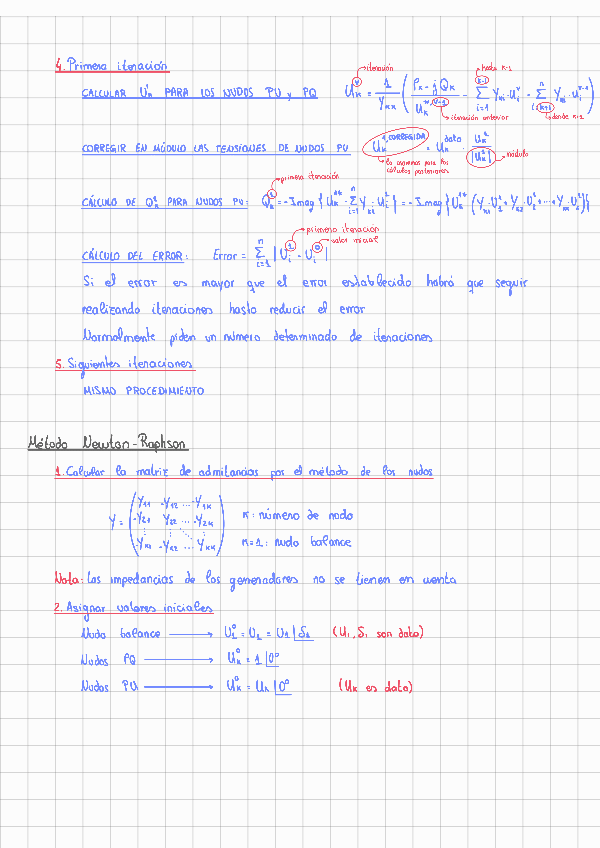 4. Primera iteración
→ iteración
→ hasta k-1
CALCULAR U¹ₖ PARA LOS NUDOS PU y PQ   Uₖ^ν = 1/Yₖₖ ( (Pₖ - j Qₖ)/Uₖ^{*,ν-1} - Σ_{i=1}^{k-1} Yₖᵢ · Uᵢ^ν - Σ_{i=k+1}^{n} Yₖᵢ · Uᵢ^{ν-1} )
→ iteración anterior
→ donde k=1
CORREGIR EN MÓDULO LAS TENSIONES DE NUDOS PU   Uₖ^{1,CORREGIDA} = Uₖ^{dato} · Uₖ¹/|Uₖ¹| → módulo
→ la usaremos para los
cálculos posteriores
→ primera iteración
CÁLCULO DE Qₖ¹ PARA NUDOS PU: Qₖ¹ = -Imag { Uₖ^{1*} · Σ_{i=1}^{n} Yₖᵢ · Uᵢ¹ } = -Imag { Uₖ^{1*} (Yₖ₁·U₁¹ + Yₖ₂·U₂¹ + ··· + Yₖₖ·Uₖ¹) }
→ primera iteración
→ valor inicial
CÁLCULO DEL ERROR: Error = Σ_{i=1}^{n} | Uᵢ¹ - Uᵢ⁰ |
Si el error es mayor que el error establecido habrá que seguir
realizando iteraciones hasta reducir el error
Normalmente piden un número determinado de iteraciones
5. Siguientes iteraciones
MISMO PROCEDIMIENTO
Método Newton-Raphson
1. Calcular la matriz de admitancias por el método de los nudos
Y = ( Y₁₁ -Y₁₂ ... -Y₁ₖ
-Y₂₁ Y₂₂ ... -Y₂ₖ
-Yₖ₁ -Yₖ₂ ... Yₖₖ )
k: número de nodo
k=1: nudo balance
Nota: Las impedancias de los generadores no se tienen en cuenta
2. Asignar valores iniciales
Nudo balance → U₁⁰ = U₁ = U₁ |δ₁ (U₁, δ₁ son dato)
Nudos PQ → Uₖ⁰ = 1 |0°
Nudos PU → Uₖ⁰ = Uₖ |0° (Uₖ es dato)